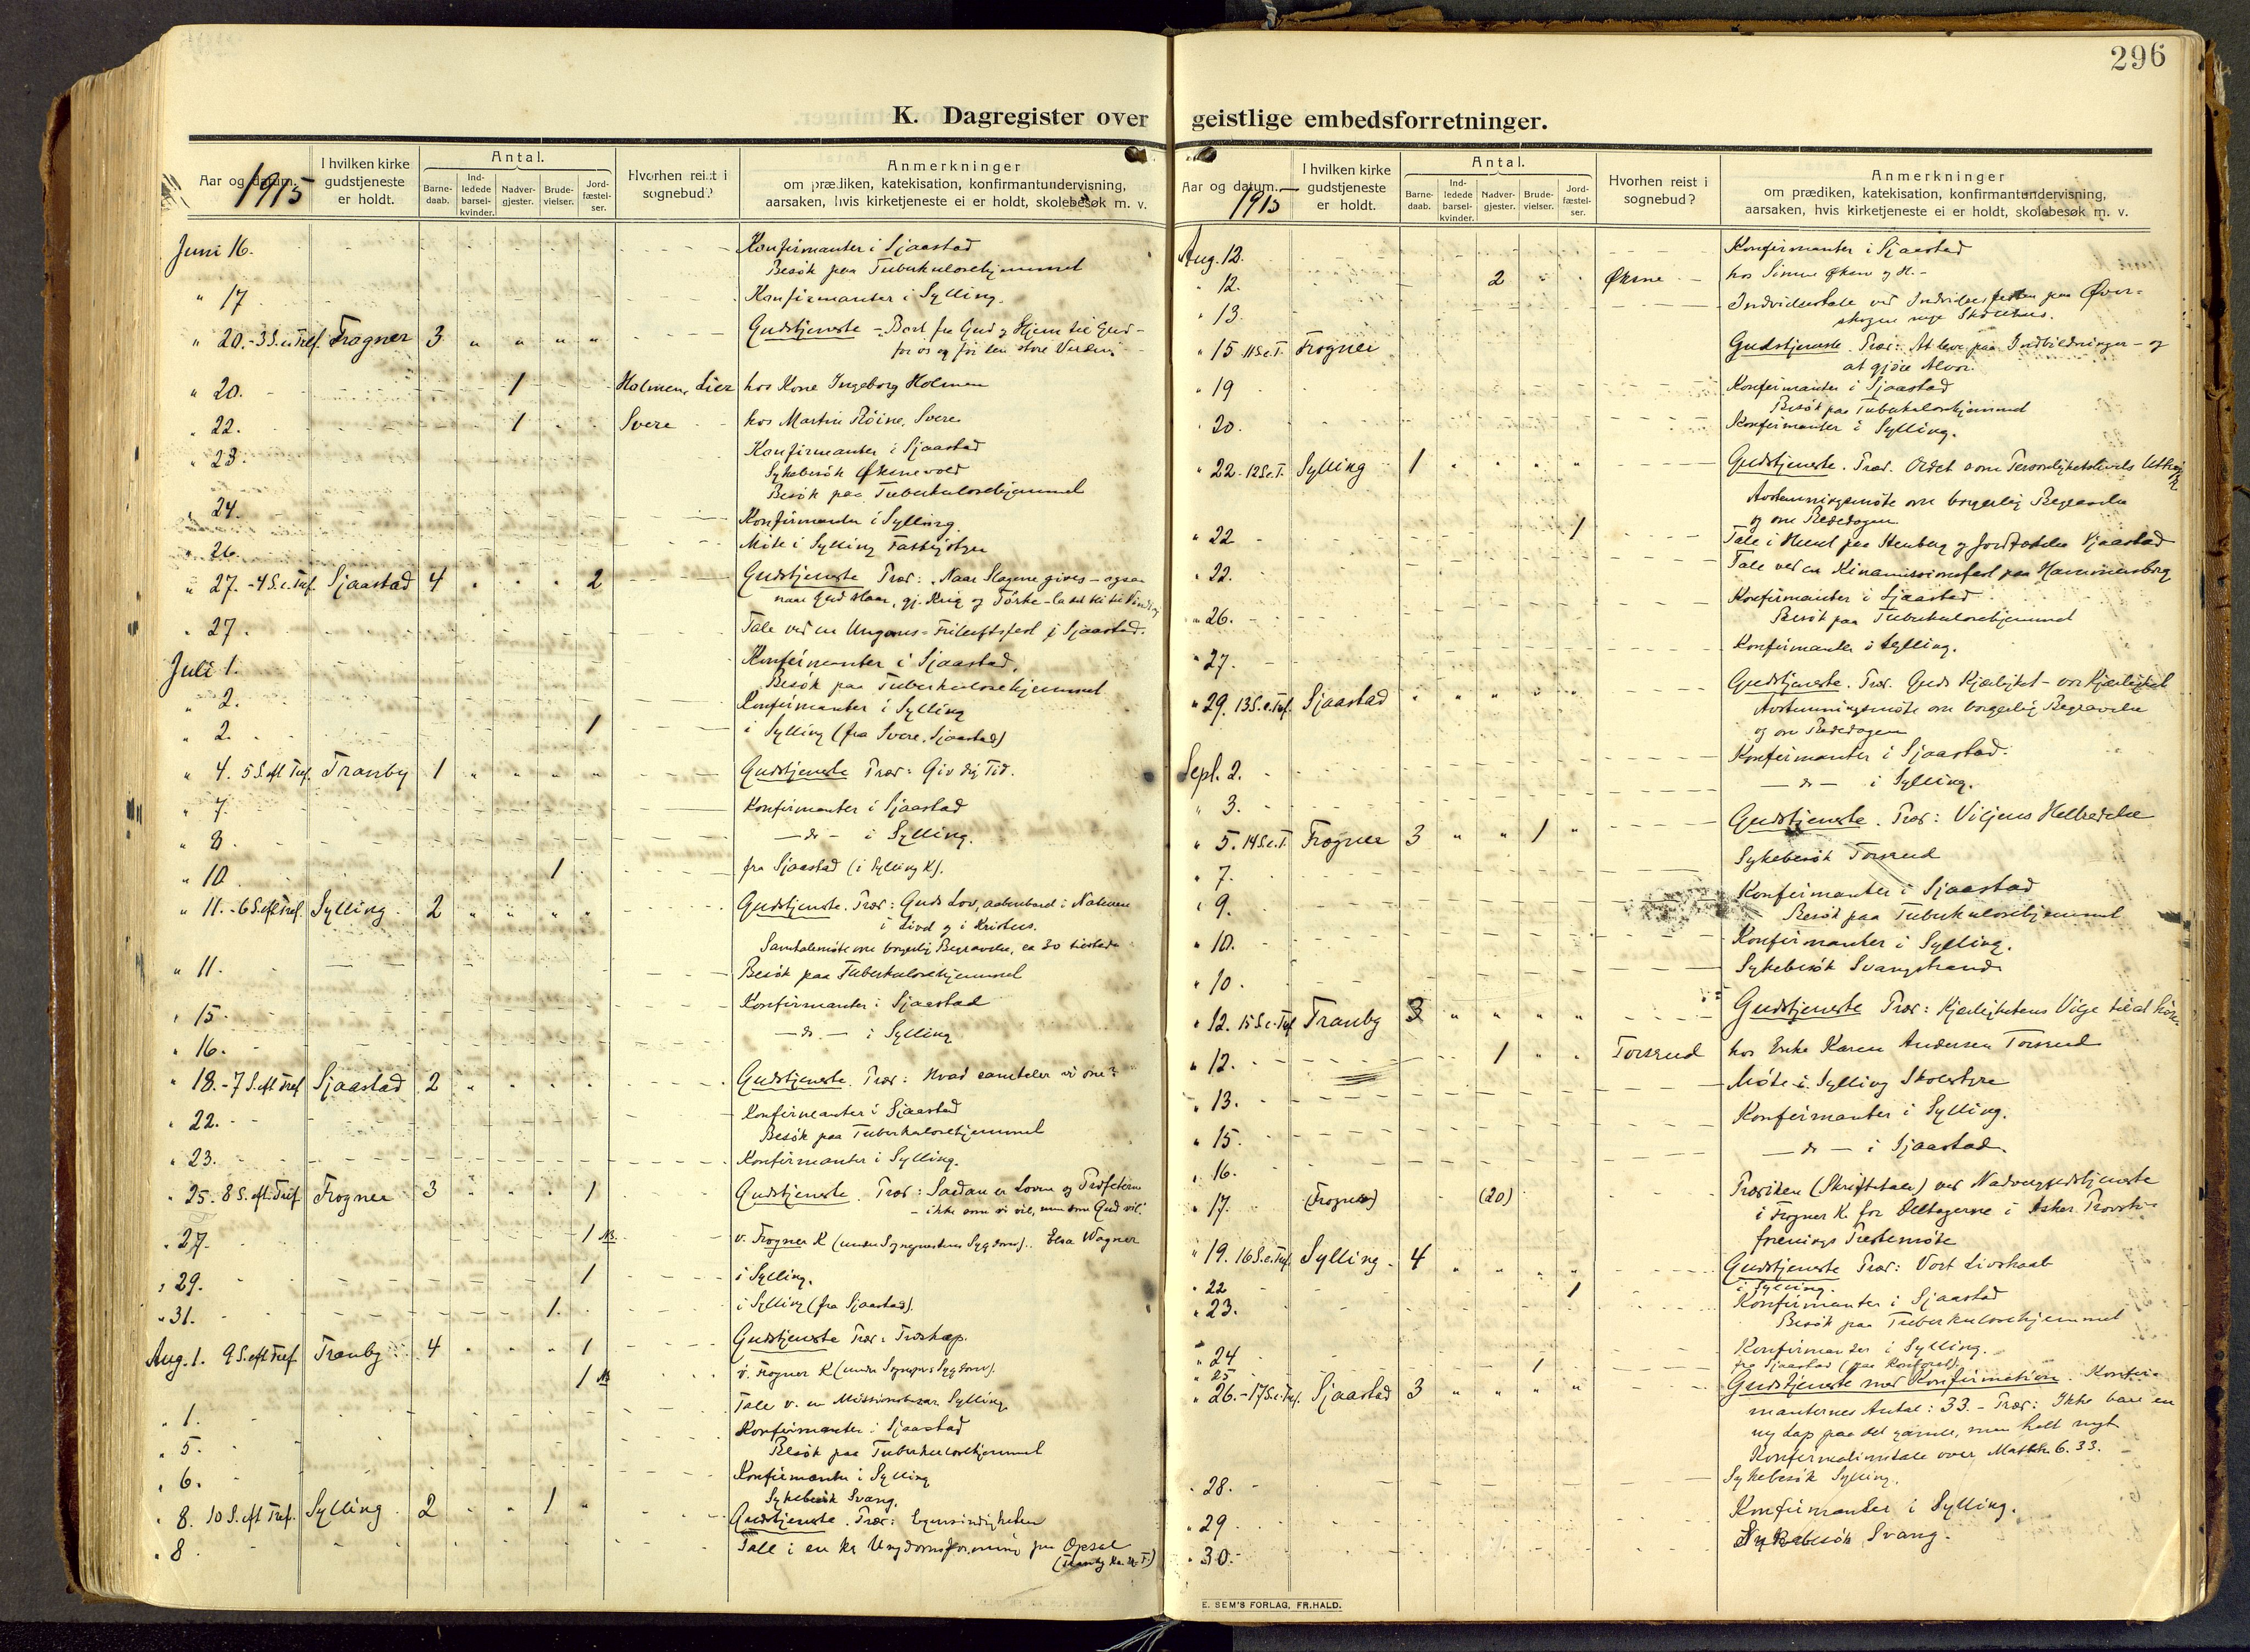 296
K. Dagregister over geistlige embedsforretninger.
Aar og datum.
1915
I hvilken kirke gudstjeneste er holdt.
Antal.
Barne-daab.
Ind-ledede barsel-kvinder.
Nadver-gjester.
Brude-vielser.
Jord-fæstel-ser.
Hvorhen reist i sognebud?
Anmerkninger
om prædiken, katekisation, konfirmantundervisning,
aarsaken, hvis kirketjeneste ei er holdt, skolebesøk m. v.
Juni 16. Konfirmanter i Sjaastad
Besök paa Tuberkulosehjemmet
" 17 Konfirmanter i Sylling.
" 20. - 3 S. e. Tref. Frogner 3 " " " " Gudstjeneste - Bort fra Gud og Hjem til Gud -
for os og for den store Verden
" 20. 1 Holmen, Lier hos Kone Ingeborg Holmen
" 22. 1 Svere hos Martin Röine, Svere
" 23. Konfirmanter i Sjaastad
Sykebesök Øksnevold
Besök paa Tuberkulosehjemmet
" 24. Konfirmanter i Sylling
" 26. Möte i Sylling
" 27. - 4 S. e. Tref. Sjaastad 4 " " " 2 Gudstjeneste Præd: Naar Slagene gives - ogsaa
naar Gud slaar, gj. Krig og Törke - la det bli til
" 27. Tale ved en Ungdoms-Friluftsfest i Sjaastad.
Juli 1. Konfirmanter i Sjaastad.
Besök paa Tuberkulosehjemmet
" 2. Konfirmanter i Sylling
" 2. 1 i Sylling (fra Svere, Sjaastad)
" 4. 5 S. eft Tref. Tranby 1 " " " " Gudstjeneste Præd: Giv dig Tid.
" 7. Konfirmanter i Sjaastad
" 8. - do - i Sylling.
" 10. 1 fra Sjaastad (i Sylling K).
" 11. - 6 S. eft Tref. Sylling 2 " " " " Gudstjeneste. Præd: Guds Lov, aabenbaret i Naturen
i Livet og i Kristus.
Samtalemöte om borgerlig Begravelse, ca 30 tilstede
" 11. Besök paa Tuberkulosehjemmet
" 15. Konfirmanter i Sjaastad
" 16. - do. - i Sylling
" 18. - 7 S. eft Tref Sjaastad 2 " " " " Gudstjeneste. Præd: Hvad samtaler vi om?
" 22. Konfirmanter i Sjaastad
Besök paa Tuberkulosehjemmet
" 23. Konfirmanter i Sylling.
" 25. 8 S. eft. Tref. Frogner 3 " " " 1 Gudstjeneste. Præd: Saadan er Loven og Profeterne
- ikke som vi vil, men som Gud vil.
" 27. 1 NB. v. Frogner K (under Sogneprestens Sygdom). Elsa Wagner
" 29. 1 i Sylling.
" 31. 1. i Sylling (fra Sjaastad).
Aug. 1. 9 S. eft Tref Tranby 4 " " " 1 Gudstjeneste Præd:
1 NB v. Frogner K (under Sognepr.s Sygdom).
" 1. Tale v. en Missionsbasar Sylling
" 5. Konfirmanter i Sjaastad
Besök paa Tuberkulosehjemmet
" 6. Konfirmanter i Sylling
Sykebesök Svang.
" 8. 10 S. eft Tref. Sylling 2 " " 1 " Gudstjeneste. Præd: Egensindigheten
" 8 Tale i en kr Ungdomsforening paa Opsal
Aar og datum.
1915
I hvilken kirke gudstjeneste er holdt.
Antal.
Barne-daab.
Ind-ledede barsel-kvinder.
Nadver-gjester.
Brude-vielser.
Jord-fæstel-ser.
Hvorhen reist i sognebud?
Anmerkninger
om prædiken, katekisation, konfirmantundervisning,
aarsaken, hvis kirketjeneste ei er holdt, skolebesøk m. v.
Aug. 12. Konfirmanter i Sjaastad
" 12. 2 " " Øksne
" 13. Indvielsestale ved Indvielsesfesten paa Øver-
skogen nye Skolehus.
" 15 11 S. e. T. Frogner Gudstjeneste. Præd: At leve paa Indbildninger - og
at gjöre Alvor.
" 19 Konfirmanter i Sjaastad
Besök paa Tuberkulosehjemmet
" 20. Konfirmanter i Sylling.
" 22 - 12 S. e. T. Sylling 1 " " " " Gudstjeneste. Præd. Ordet som Personlighetslivets
Avstemningsmöte om borgerlig Begravelse
og om Bededagen
" 22 1 Tale i Huset paa Stenberg og Jordfæstelse Sjaastad
" 22. Tale ved en Kinamissionsfest paa Hammersborg
" 26. Konfirmanter i Sjaastad
Besök paa Tuberkulosehjemmet
" 27. Konfirmanter i Sylling.
" 29. 13 S. e. Tref. Sjaastad " " " " " Gudstjeneste. Præd. Guds Kjærlighet - vor Kjærlighet
Avstemningsmöte om borgerlig Begravelse
og om Bededagen
Sept. 2. Konfirmanter i Sjaastad.
" 3. - do - i Sylling.
" 5. 14 S. e. T. Frogner 3 " " 1 " Gudstjeneste. Præd: Viljens Helbredelse
" 7. Sykebesök Torsrud
" 9. Konfirmanter i Sjaastad
Besök paa Tuberkulosehjemmet
" 10. Konfirmanter i Sylling.
" 10. Sykebesök Svangstrand
" 12. 15 S. e. Tref Tranby 3 " " " " Gudstjeneste Præd: Kjærlighetens Vilje til at
" 12. 1 " " Torsrud hos Enke Karen Andersen Torsrud
" 13. Möte i Sylling Skolestyre
" 15. Konfirmanter i Sylling.
" 16. - do - i Sjaastad.
" 17. (Frogner) (20) Prædiken (Skriftetale) ved Nadvergudstjeneste
i Frogner K. for Deltagerne i Asker Provsti-
forenings Prestemöte
" 19. 16 S. e. Tref. Sylling 4 " " " " Gudstjeneste Præd: Vort Livshaab
" 22 1 i Sylling.
" 23. Konfirmanter i Sjaastad
Besök paa Tuberkulosehjemmet
" 24 Konfirmanter i Sylling.
" 25 1 fra Sjaastad
" 26. - 17 S. e. Tref. Sjaastad 3 " " " " Gudstjeneste med Konfirmation. Konfir-
manternes Antal: 33. - Præd: Ikke bare en
ny Lap paa det gamle, men helt nyt
Konfirmationstale over Matth. 6. 33.
" 28. Sykebesök Sylling.
" 29 Konfirmanter i Sylling.
" 30. Sykebesök Svang.
E. SEM'S FORLAG, FR.HALD.